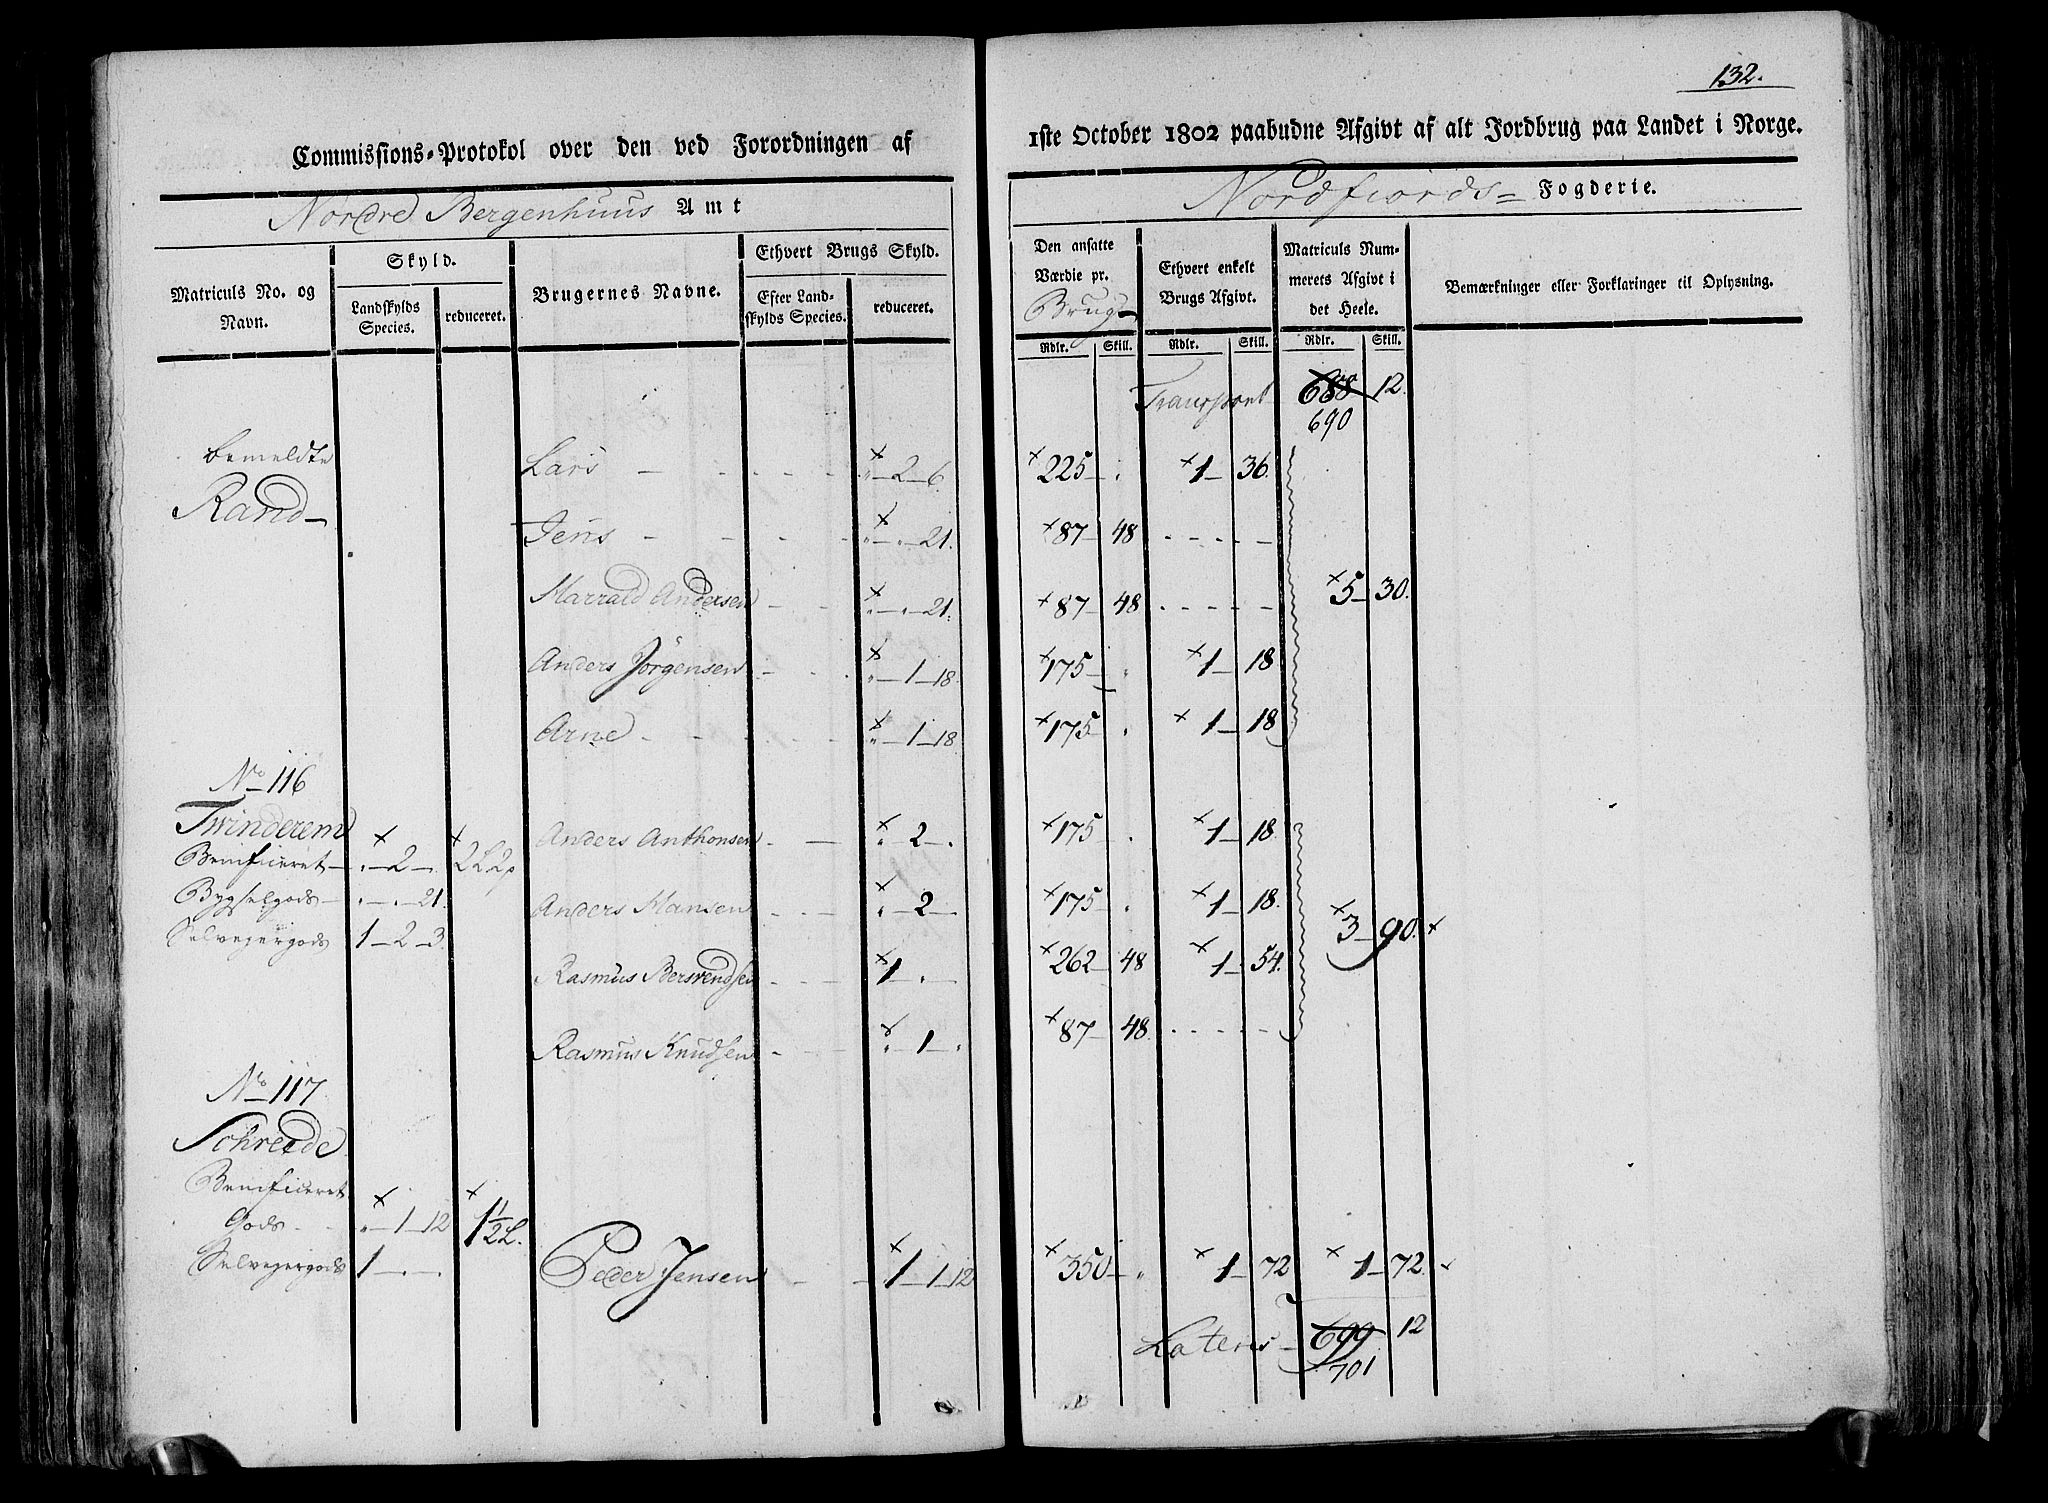 132.
Commissions-Protokol over den ved Forordningen af 1ste October 1802 paabudne Afgivt af alt Jordbrug paa Landet i Norge.
Nordre Bergenhuus Amt
Nordfiords- Fogderie.
Matriculs No. og Navn.
Skyld.
Landskylds Species.
reduceret.
Brugernes Navne.
Ethvert Brugs Skyld.
Efter Landskylds Species.
reduceret.
Den ansatte Værdie pr. Brug
Ethvert enkelt Brugs Afgivt.
Matriculs Nummerets Afgivt i det Heele.
Bemærkninger eller Forklaringer til Oplysning.
Rdlr. Skill. Rdlr. Skill. Rdlr. Skill.
Transport 688 12.
690
bemeldte
Rand-
Lars - - - - - x „-2-6. x 225- „ x 1- 36.
Jens - - - - - x „-„-21. x 87- 48 - - - - -
Harrald Andersen - - x „-„-21. x 87- 48 - - - - - x 5- 30.
Anders Jörgensen - - x „-1-18. x 175- „ x 1- 18
Arne - - - - - x „-1-18. x 175- „ x 1- 18
No 116
Twinderem
Benificeret- x „-2-„ x 2L2p Anders Anthonsen - - x „-2-„ x 175- „ x 1- 18.
Bygselgods- „-„-21. Anders Hansen - - x „-2-„ x 175- „ x 1- 18. x 3- 90. x
Selveyergods 1-2-3. Rasmus Bersvendsen - - x 1-„-„ x 262- 48 x 1- 54.
Rasmus Knudsen - - x „-1-„ x 87- 48. - - - - -
No 117
Schreede
Benificeret
Gods- x „-1-12 x 1 1/2 L.
Selveyergods 1-„-„ Peder Jensen - - x 1-1-12 x 350- „ x 1- 72 x 1- 72.
Lateris- 699 12
701